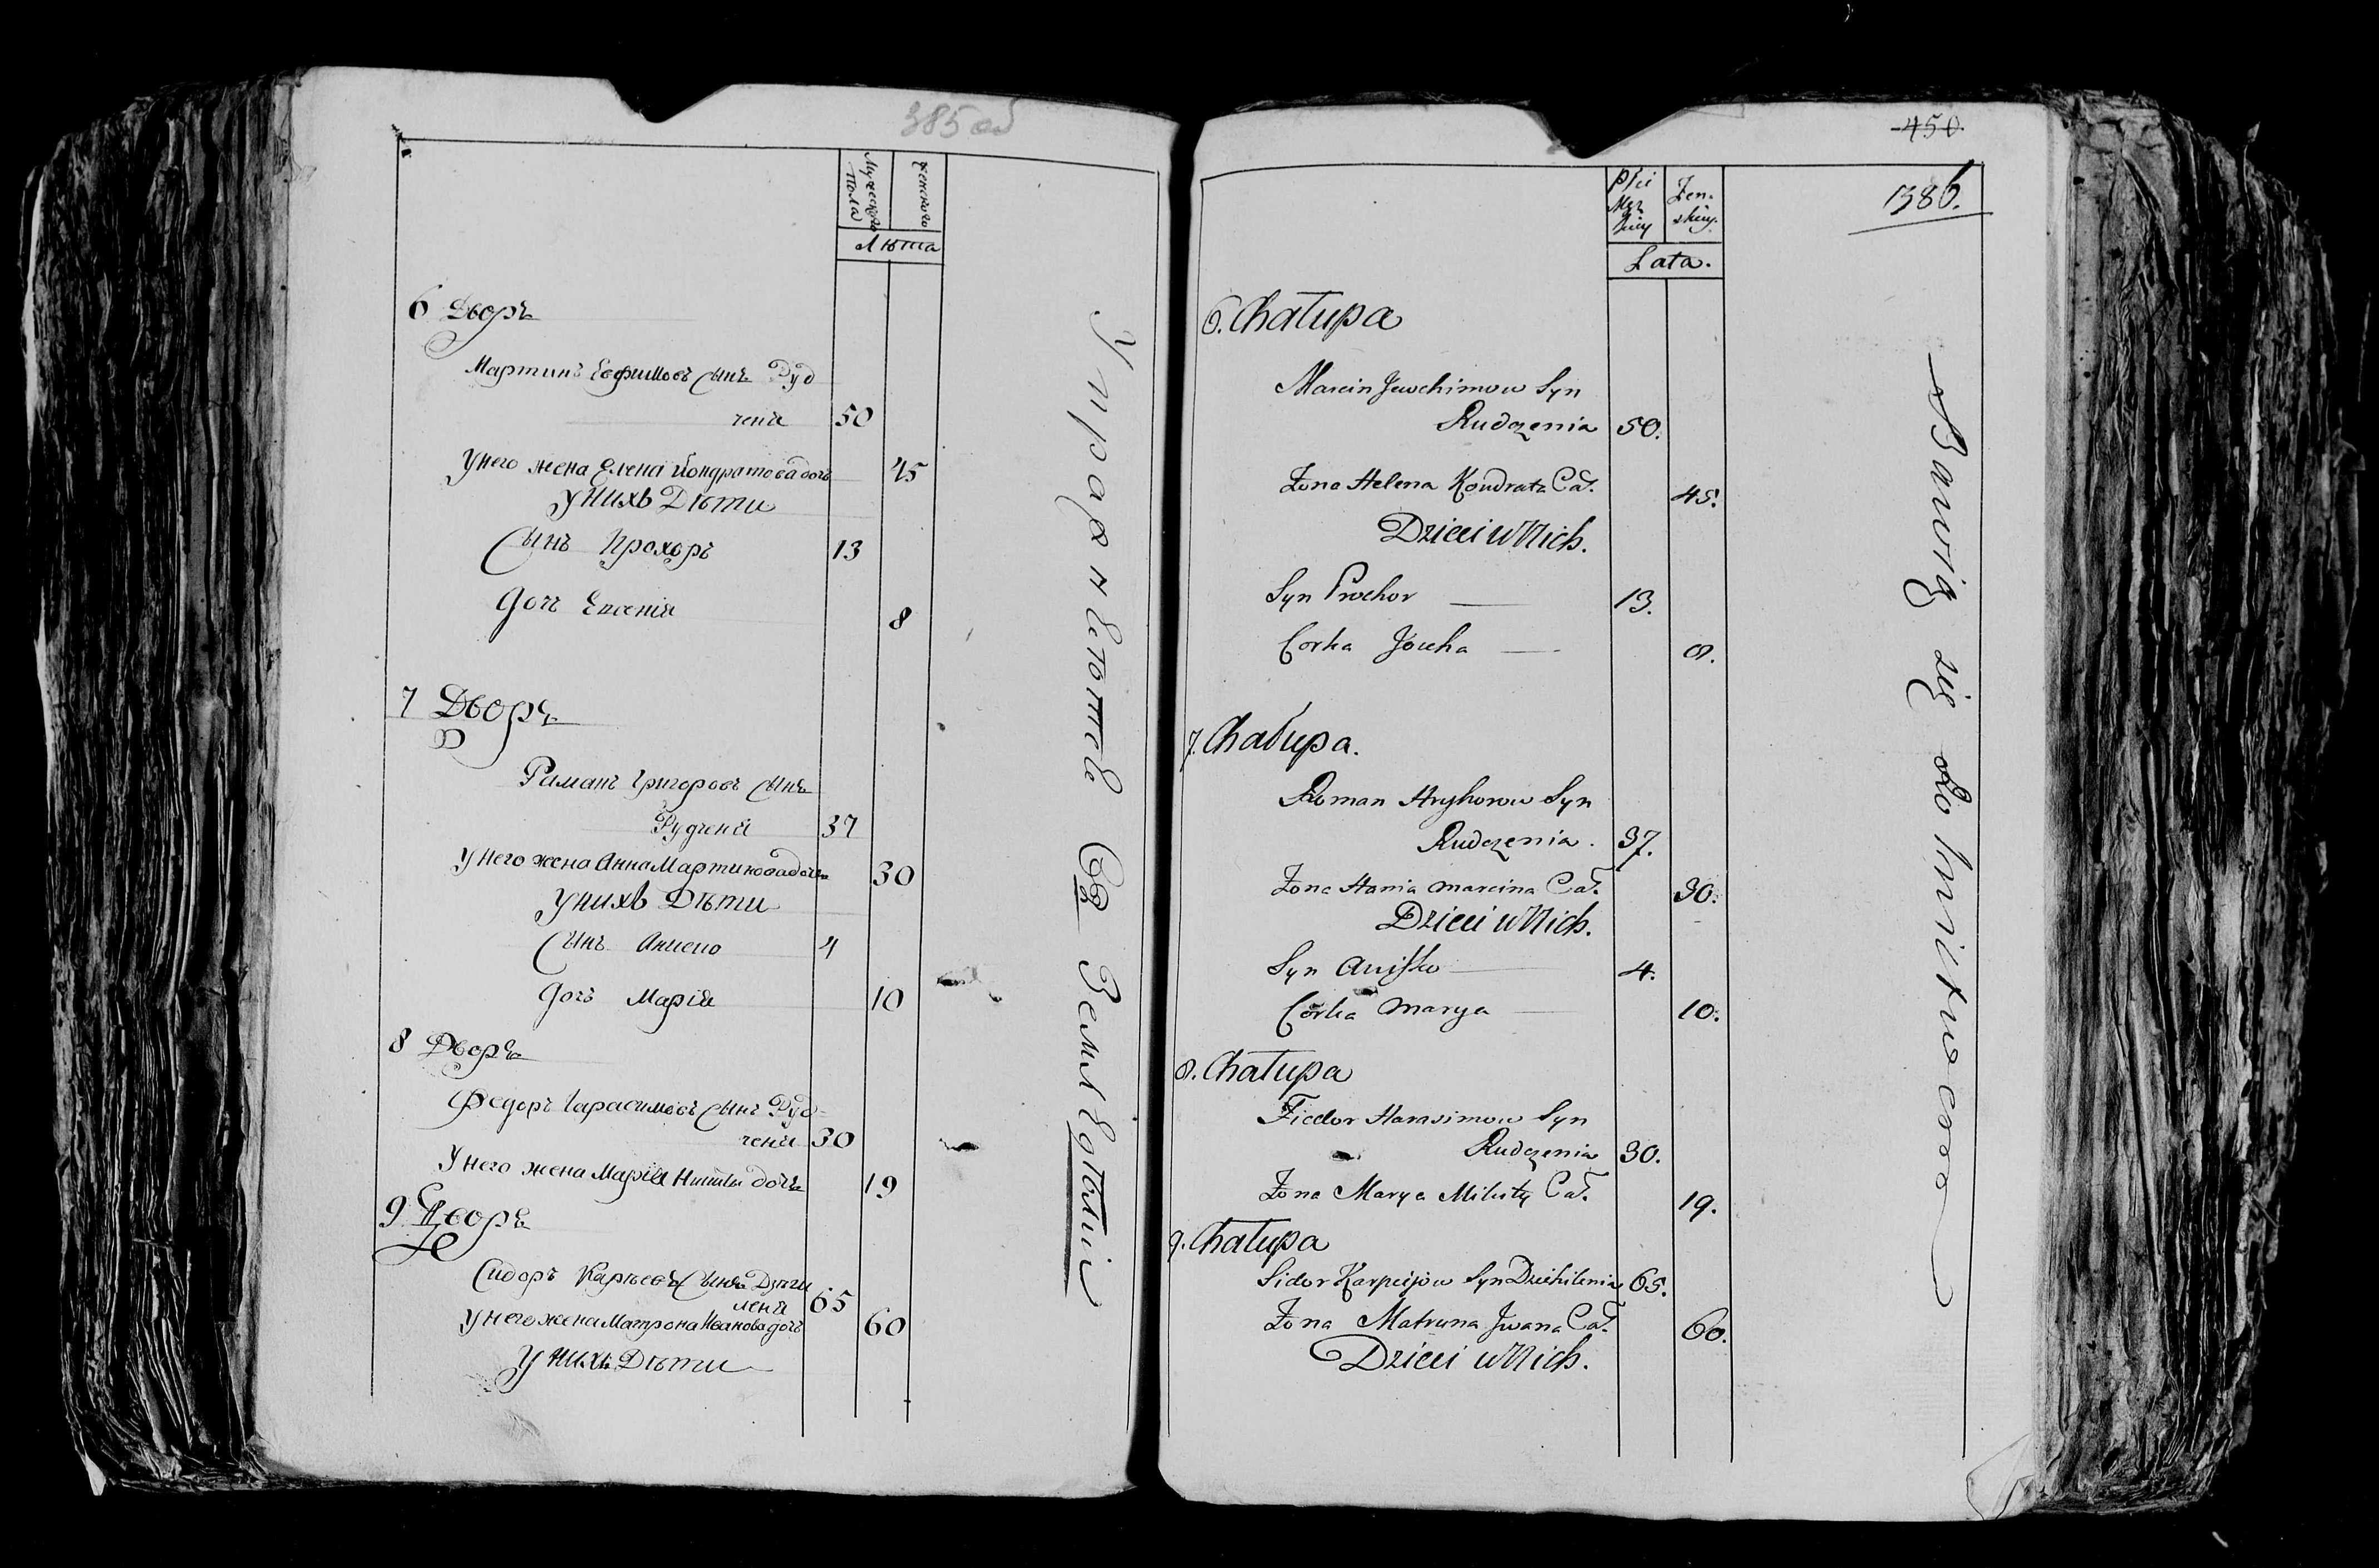 385 об
Мужеского пола
женского
Лѣта
6 Дворъ
Мартинъ Евфимовъ Сынъ Руд
ченя 50
У него жена Елена Кондратова дочь 45
У нихъ Дѣти
Сынъ Прохоръ 13
Дочь Евсенія 8
7 Дворъ
Раманъ Григоровъ Сынъ
Рудченя 37
У него жена Анна Мартинова дочь 30
У нихъ Дѣти
Сынъ 4
Дочь Марія 10
8 Дворъ
Федоръ Гарасимовъ Сынъ Руд-
ченя 30
У него жена Марія Никиты дочь 19
9 Дворъ
Сидоръ Карпѣевъ Сынъ Дзѣги
леня 65
У него жена Матрона Иванова дочь 60
У нихъ Дѣти
Упражнѣются Въ Земледѣліи
450.
1386.
Płci Męzkiey
Żeńskiey.
Lata.
6. Chałupa
Marcin Jewchimow Syn
Rudczenia 50.
Żona Helena Kondrata Cór. 45.
Dzieci u Nich.
Syn Prochor 13.
Corka Jowha 8.
7. Chałupa.
Roman Hryhorow Syn
Rudczenia. 37.
Żona Hania Marcina Cór. 30.
Dzieci u Nich.
Syn Anisko 4.
Corka Marya 10.
8. Chałupa
Fiedor Harasimow Syn
Rudczenia 30.
Żona Marya Mikity Cór. 19.
9. Chałupa
Sidor Karpiejow Syn Dziehilenia 65.
Żona Matruna Jwana Cór. 60.
Dzieci u Nich.
Bawią się